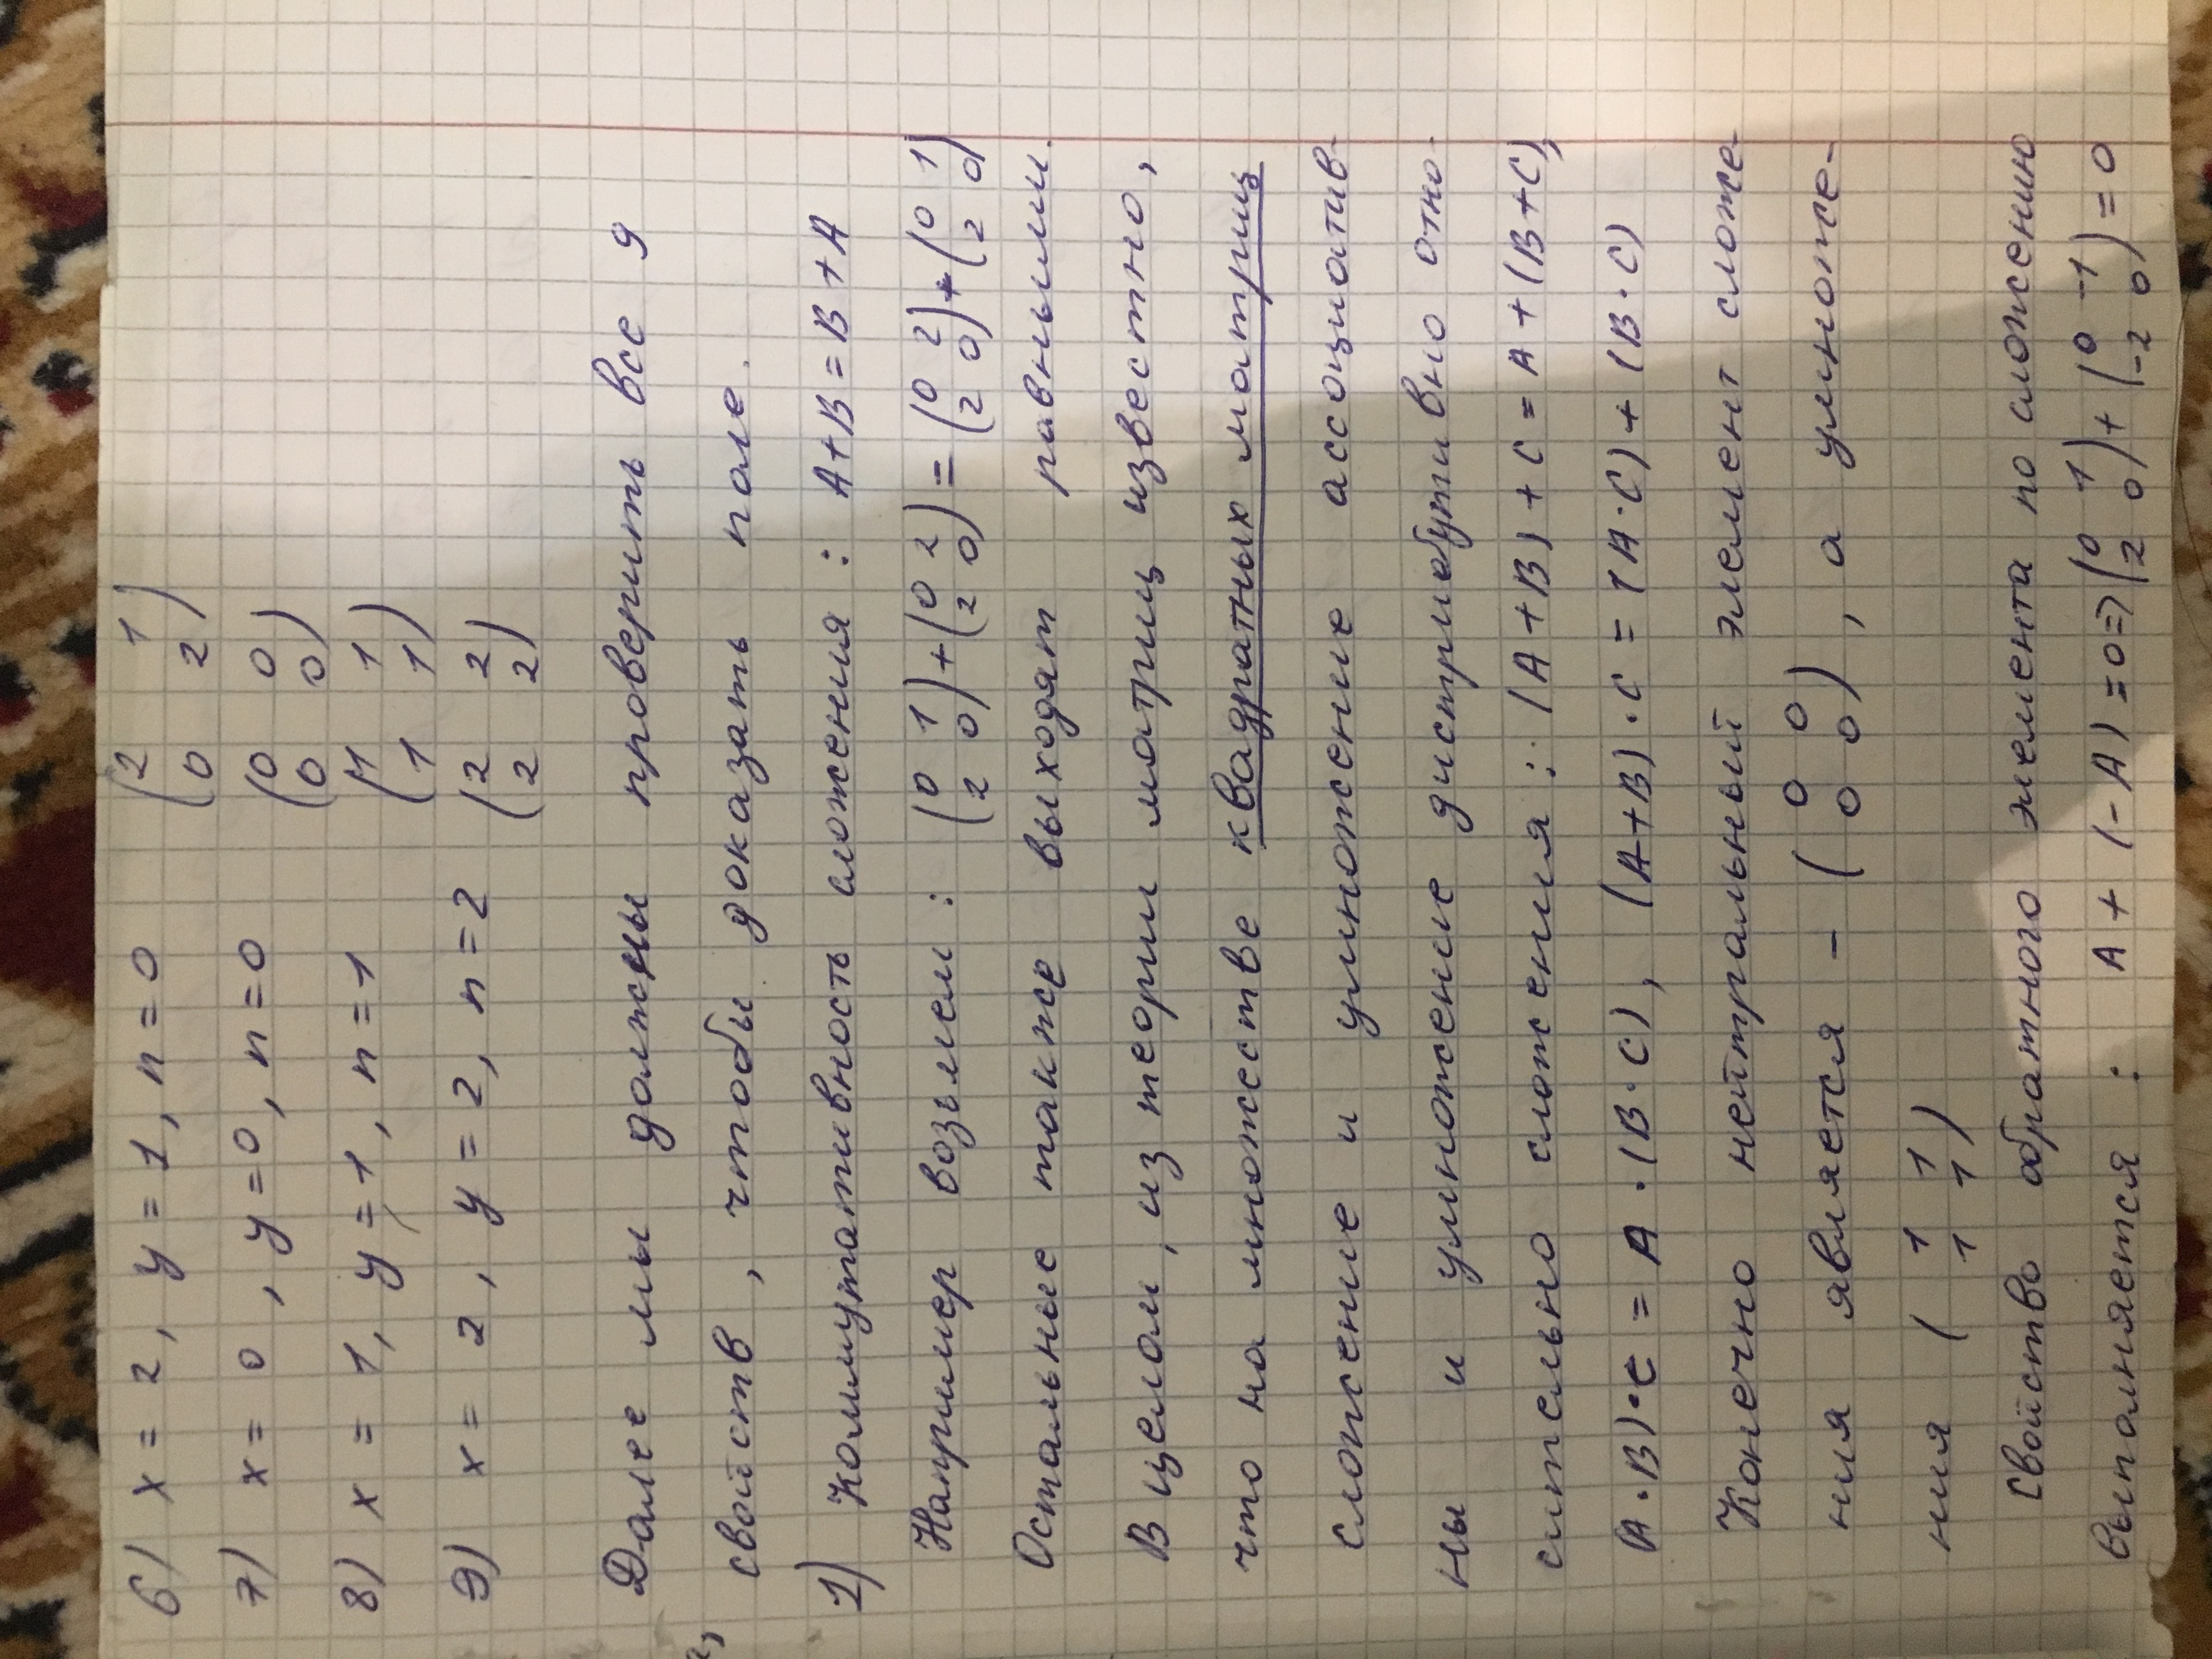 6) x = 2, y = 1, n = 0 (2 1
0 2)
7) x = 0, y = 0, n = 0 (0 0
0 0)
8) x = 1, y = 1, n = 1 (1 1
1 1)
9) x = 2, y = 2, n = 2 (2 2
2 2)
Далее мы должны проверить все 9
свойств, чтобы доказать поле.
1) Коммутативность сложения: A+B = B+A
Например возьмем: (0 1
2 0) + (0 2
2 0) = (0 2
2 0) + (0 1
2 0)
Остальные также выходят равными.
В целом, из теории матриц известно,
что на множестве квадратных матриц
сложение и умножение ассоциатив-
ны и умножение дистрибутивно отно-
сительно сложения: (A+B)+C = A+(B+C),
(A·B)·C = A·(B·C), (A+B)·C = (A·C)+(B·C)
Конечно нейтральный элемент сложе-
ния является - (0 0
0 0), а умноже-
ния (1 1
1 1)
Свойство обратного элемента по сложению
выполняется: A + (-A) = 0 => (0 1
2 0) + (0 -1
-2 0) = 0